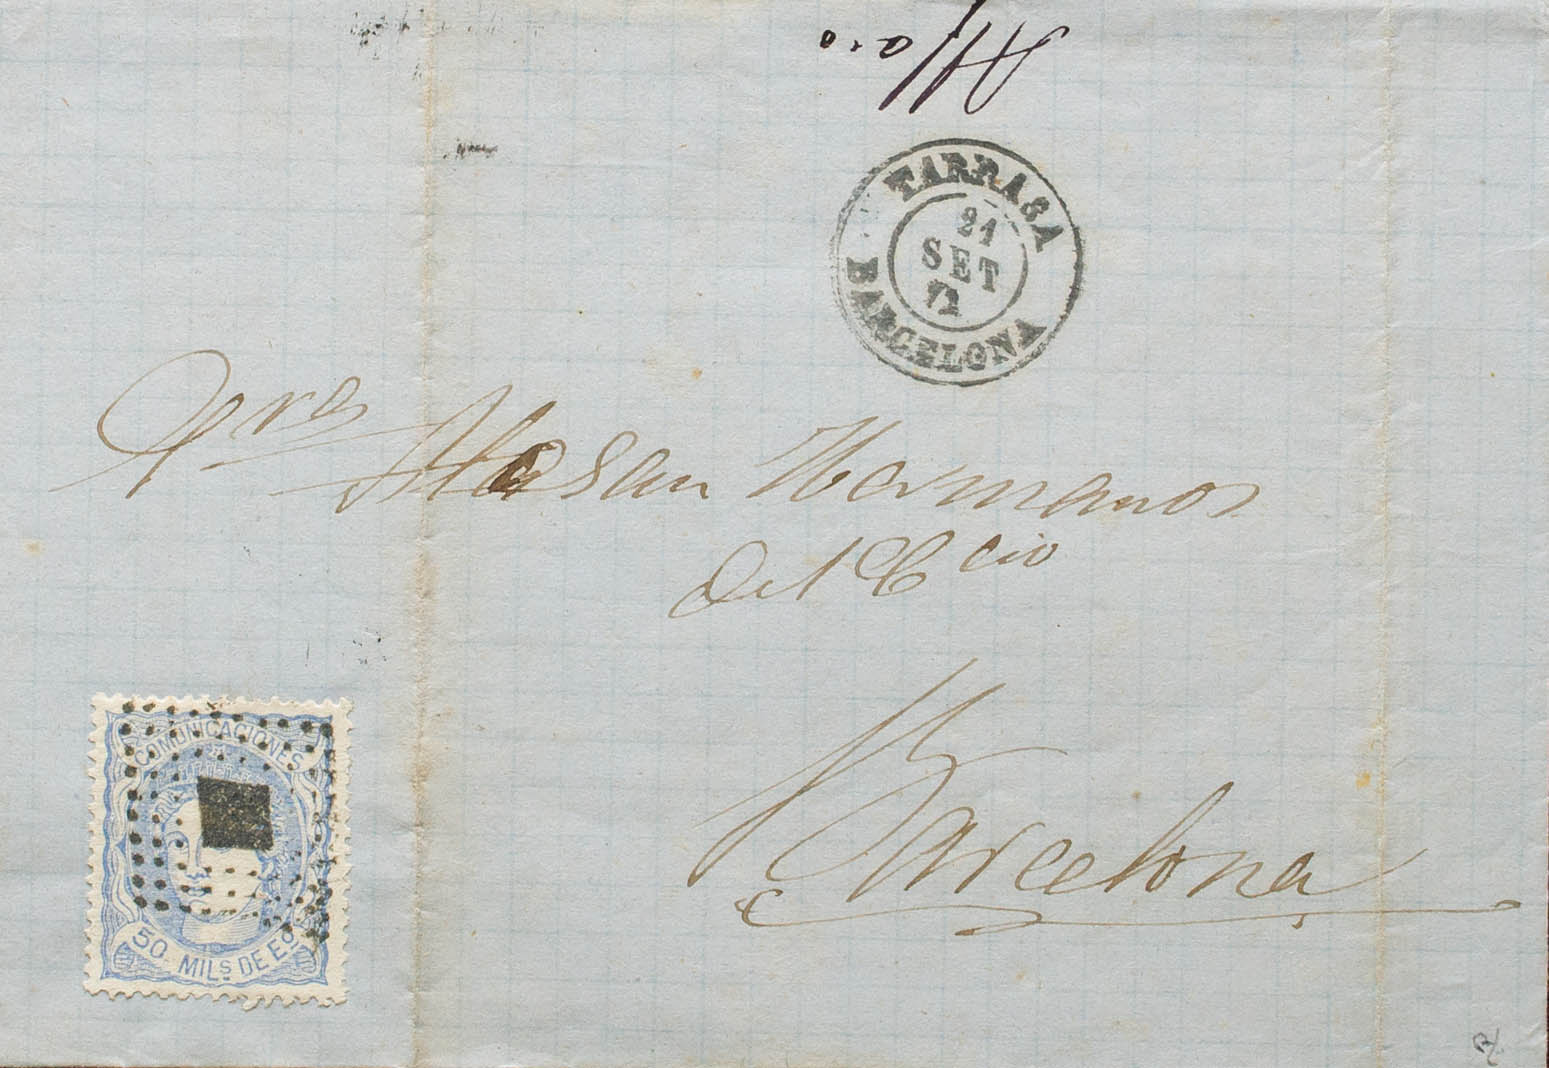 TARRASA
21
SET
71
BARCELONA
Sres Masan Hermanos
Del Ccio
Barcelona
COMUNICACIONES
50. MILs DE Eo